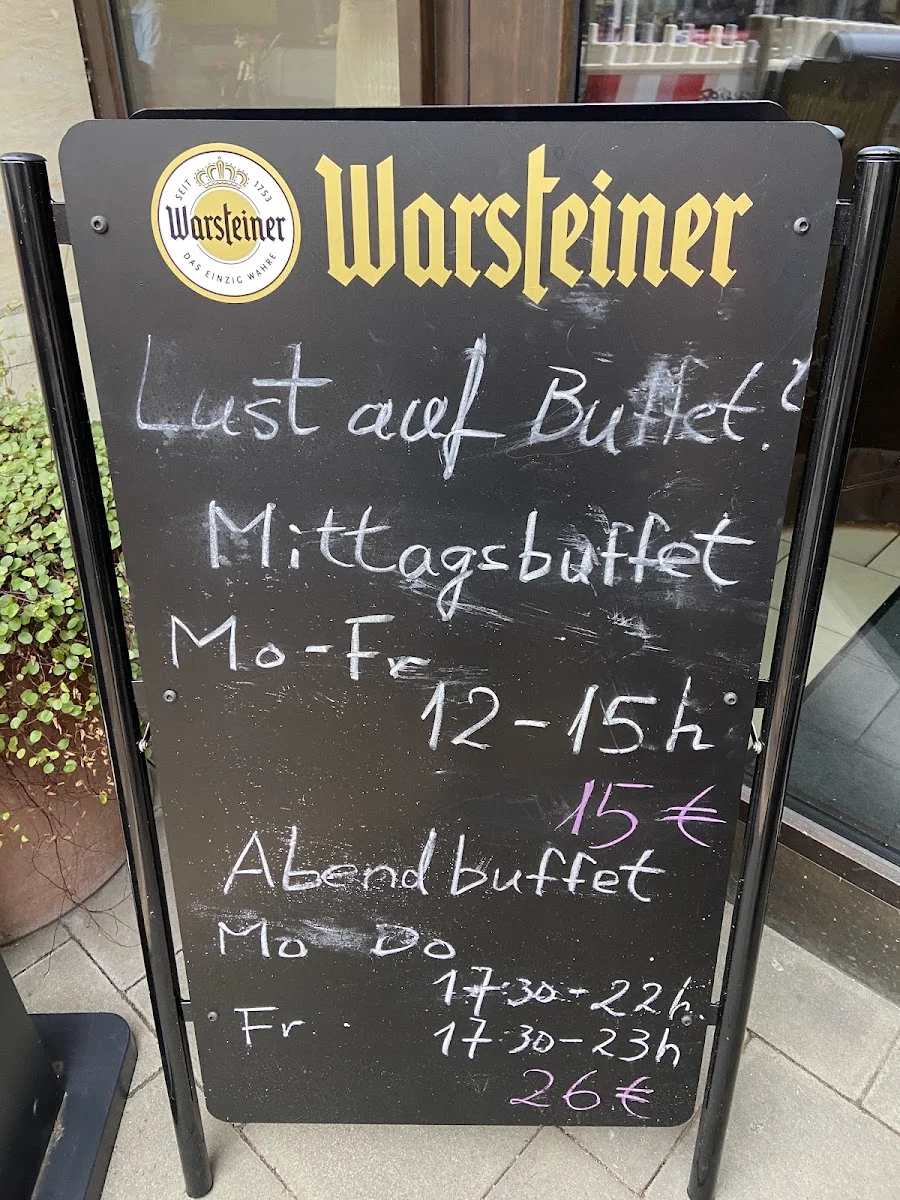 SEIT 1753
Warsteiner
DAS EINZIG WAHRE
Warsteiner
Lust auf Buffet?
Mittagsbuffet
Mo-Fr
12-15h
15€
Abendbuffet
Mo Do
17:30-22h.
Fr.
17:30-23h
26€